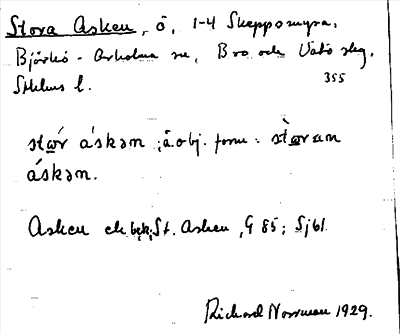 Stora Asken, ö, 1-4 Skeppsmyra,
Björkö-Arholma sn, Bro och Vätö skg,
Sthlms l. 355
stω̲r áskən; å. obj. form: stω̲ran
áskən.
Asken ek bk; St. Asken, G 85; Sjbl.
Richard Norrman 1929.